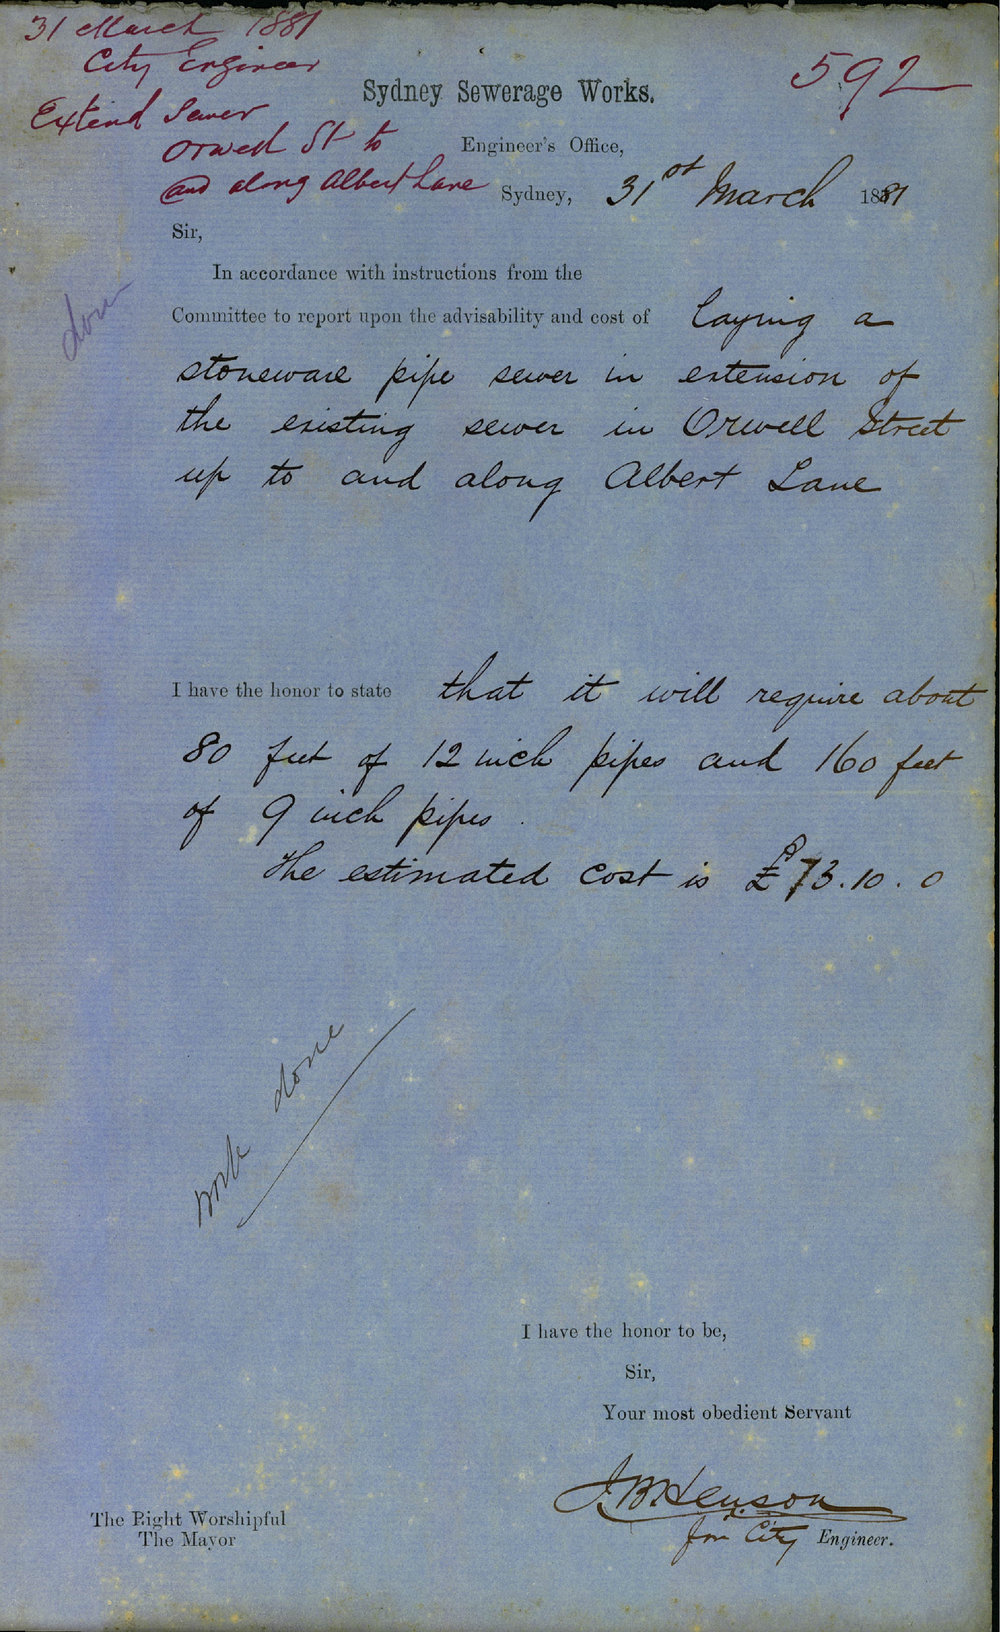 31 March 1881
City Engineer
Extend Sewer
Orwell St to
and along Albert Lane
592
Sydney Sewerage Works.
Engineer's Office,
Sydney, 31st March 1881
Sir,
In accordance with instructions from the
Committee to report upon the advisability and cost of laying a
stoneware pipe sewer in extension of
the existing sewer in Orwell Street
up to and along Albert Lane
done
I have the honor to state that it will require about
80 feet of 12 inch pipes and 160 feet
of 9 inch pipes.
The estimated cost is £73.10.0
work done
I have the honor to be,
Sir,
Your most obedient Servant
J. B. Henson
for City Engineer.
The Right Worshipful
The Mayor